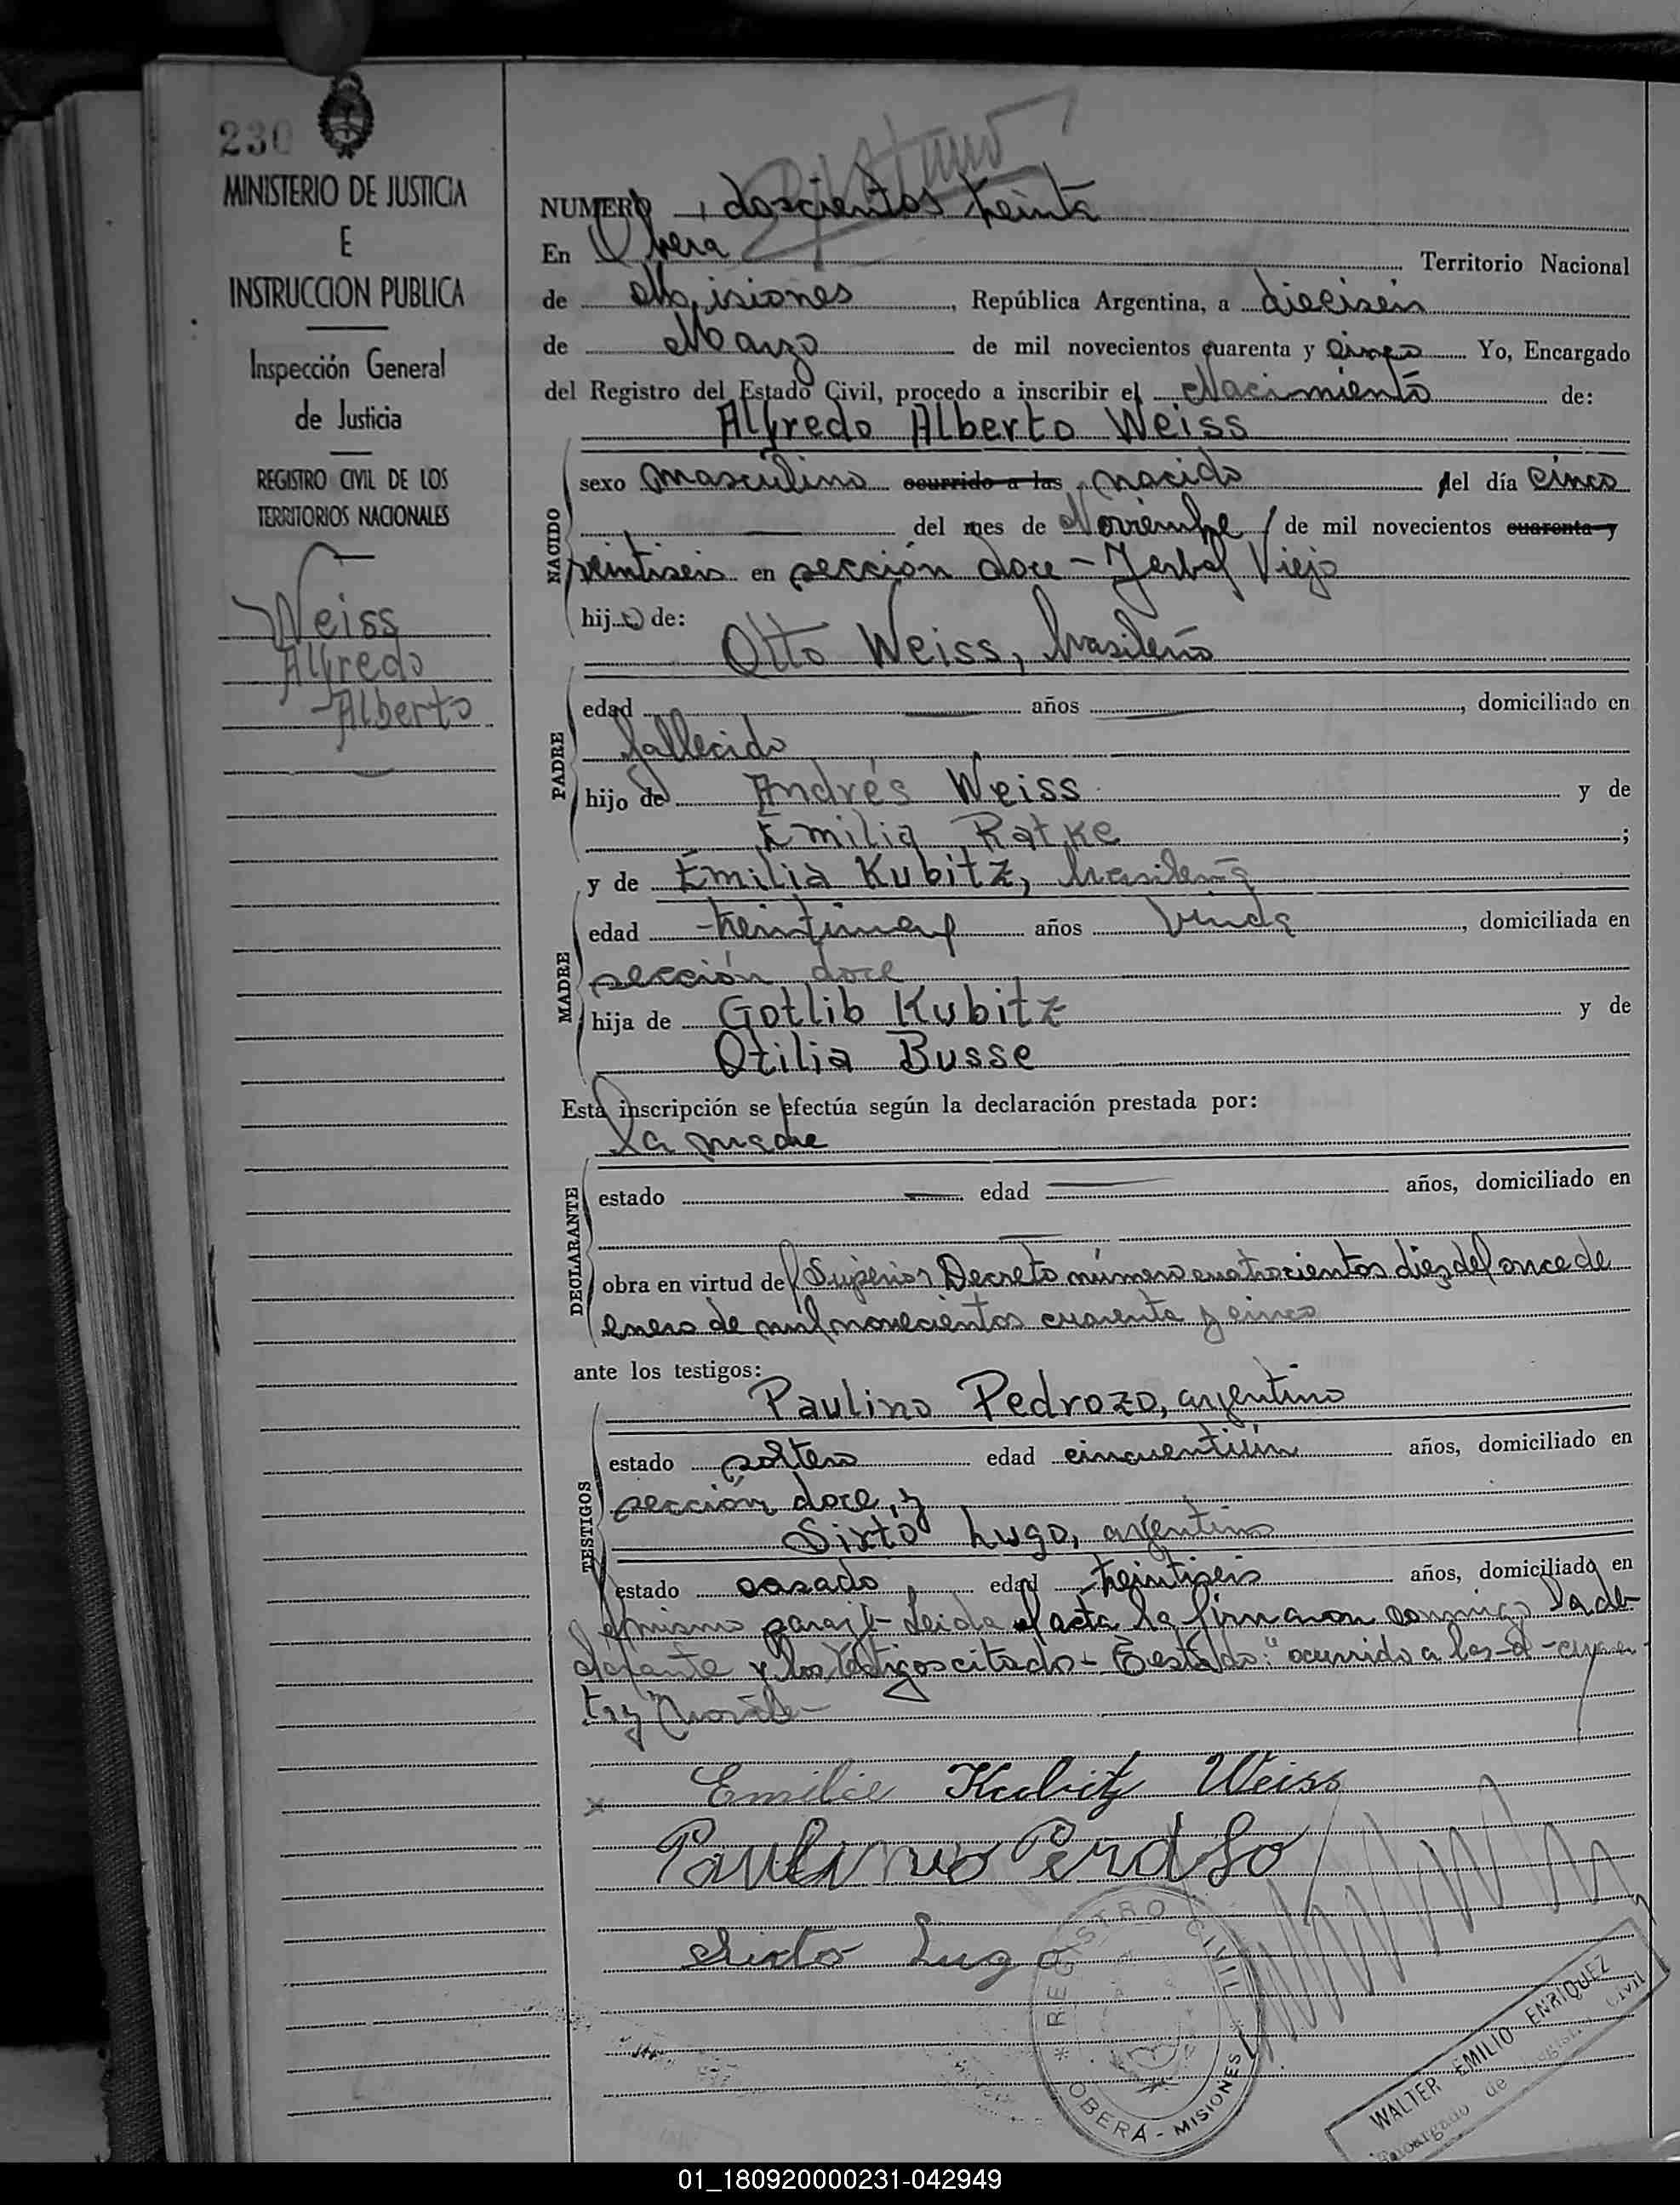 230
MINISTERIO DE JUSTICIA
E
INSTRUCCION PUBLICA
Inspección General
de Justicia
REGISTRO CIVIL DE LOS
TERRITORIOS NACIONALES
Weiss
Alfredo
Alberto
NUMERO, doscientos treinta
En Obera Territorio Nacional
de Misiones, República Argentina, a dieciseis
de Marzo de mil novecientos cuarenta y cinco Yo, Encargado
del Registro del Estado Civil, procedo a inscribir el Nacimiento de:
Alfredo Alberto Weiss
NACIDO
sexo masculino ocurrido a las nacido del día cinco
del mes de Noviembre de mil novecientos cuarenta y
veintiseis en sección doce - Yerbal Viejo
hijo de:
Otto Weiss, brasileño
PADRE
edad años , domiciliado en
fallecido
hijo de Andrés Weiss y de
Emilia Ratke ;
y de Emilia Kubitz, brasileña
MADRE
edad treintinueve años viuda, domiciliada en
sección doce
hija de Gotlib Kubitz y de
Otilia Busse
Esta inscripción se efectúa según la declaración prestada por:
la madre
DECLARANTE
estado edad años, domiciliado en
obra en virtud del Superior Decreto número cuatrocientos diez del once de
enero de mil novecientos cuarenta y cinco
ante los testigos:
Paulino Pedrozo, argentino
TESTIGOS
estado soltero edad cincuentiún años, domiciliado en
sección doce, y
Sixto Lugo, argentino
estado casado, edad treintiseis años, domiciliado en
el mismo paraje - Leida el acta la firmaron conmigo la de-
clarante y los testigos citados - Testado: "ocurrido a las - d - cuaren-
ta y" No vale -
x Emilie Kubitz Weiss
Paulino Perdoso
Sixto Lugo
* REGISTRO CIVIL *
OBERÁ - MISIONES
WALTER EMILIO ENRIQUEZ
Encargado de Registro Civil
01_180920000231-042949